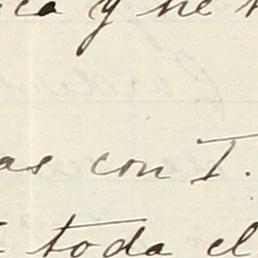 ca y he
as con I.
toda el